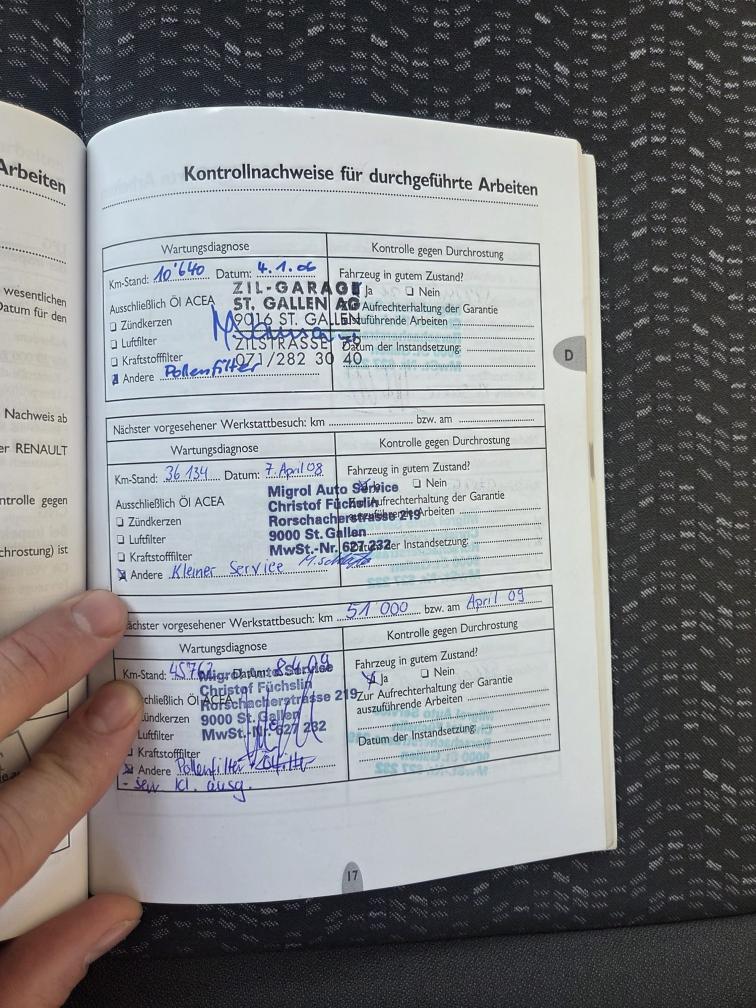 Arbeiten
wesentlichen
Datum für den
Nachweis ab
er RENAULT
ntrolle gegen
chrostung) ist
Kontrollnachweise für durchgeführte Arbeiten
Wartungsdiagnose
Km-Stand: 10'640 Datum: 4.1.06
Ausschließlich Öl ACEA
Zündkerzen
Luftfilter
Kraftstofffilter
Andere Pollenfilter
ZIL-GARAGE
ST. GALLEN AG
9016 ST. GALLEN
ZILSTRASSE
071/282 30 40
Kontrolle gegen Durchrostung
Fahrzeug in gutem Zustand?
Ja Nein
Aufrechterhaltung der Garantie
auszuführende Arbeiten
Datum der Instandsetzung:
D
Nächster vorgesehener Werkstattbesuch: km bzw. am
Wartungsdiagnose
Km-Stand: 36 134 Datum: 7. April 08
Ausschließlich Öl ACEA
Zündkerzen
Luftfilter
Kraftstofffilter
Andere Kleiner Service
Migrol Auto Service
Christof Füchslin
Rorschacherstrasse 219
9000 St. Gallen
MwSt.-Nr. 627 232
Kontrolle gegen Durchrostung
Fahrzeug in gutem Zustand?
Nein
Aufrechterhaltung der Garantie
Arbeiten
der Instandsetzung:
ächster vorgesehener Werkstattbesuch: km 51 000 bzw. am April 09
Wartungsdiagnose
Km-Stand: 45762 Datum: 8.4.09
schließlich Öl ACEA
ündkerzen
Luftfilter
Kraftstofffilter
Andere Pollenfilter
Migrol Auto Service
Christof Füchslin
Rorschacherstrasse 219
9000 St. Gallen
MwSt.-Nr. 627 232
Kontrolle gegen Durchrostung
Fahrzeug in gutem Zustand?
Ja Nein
Zur Aufrechterhaltung der Garantie
auszuführende Arbeiten
Datum der Instandsetzung:
17